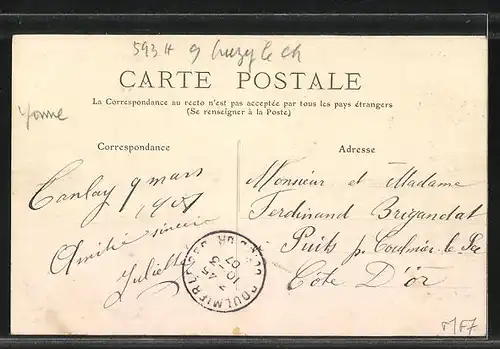 593 H 9 Cruzy le Ch
CARTE POSTALE
La Correspondance au recto n'est pas acceptée par tous les pays étrangers
(Se renseigner à la Poste)
Yonne
Correspondance
Adresse
Tanlay 9 mars
1907
Amitié sincère
Juliette
Monsieur et Madame
Ferdinand Brigandat
Puits p. Coulmier-le-Sec
Côte D'or
COULMIER-LE-SEC